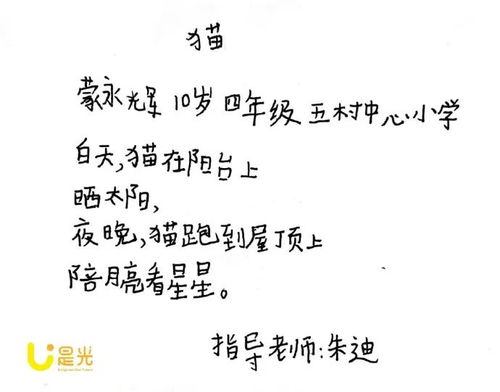 猫
蒙永辉 10岁 四年级 五村中心小学
白天,猫在阳台上
晒太阳,
夜晚,猫跑到屋顶上
陪月亮看星星。
指导老师:朱迪
是光